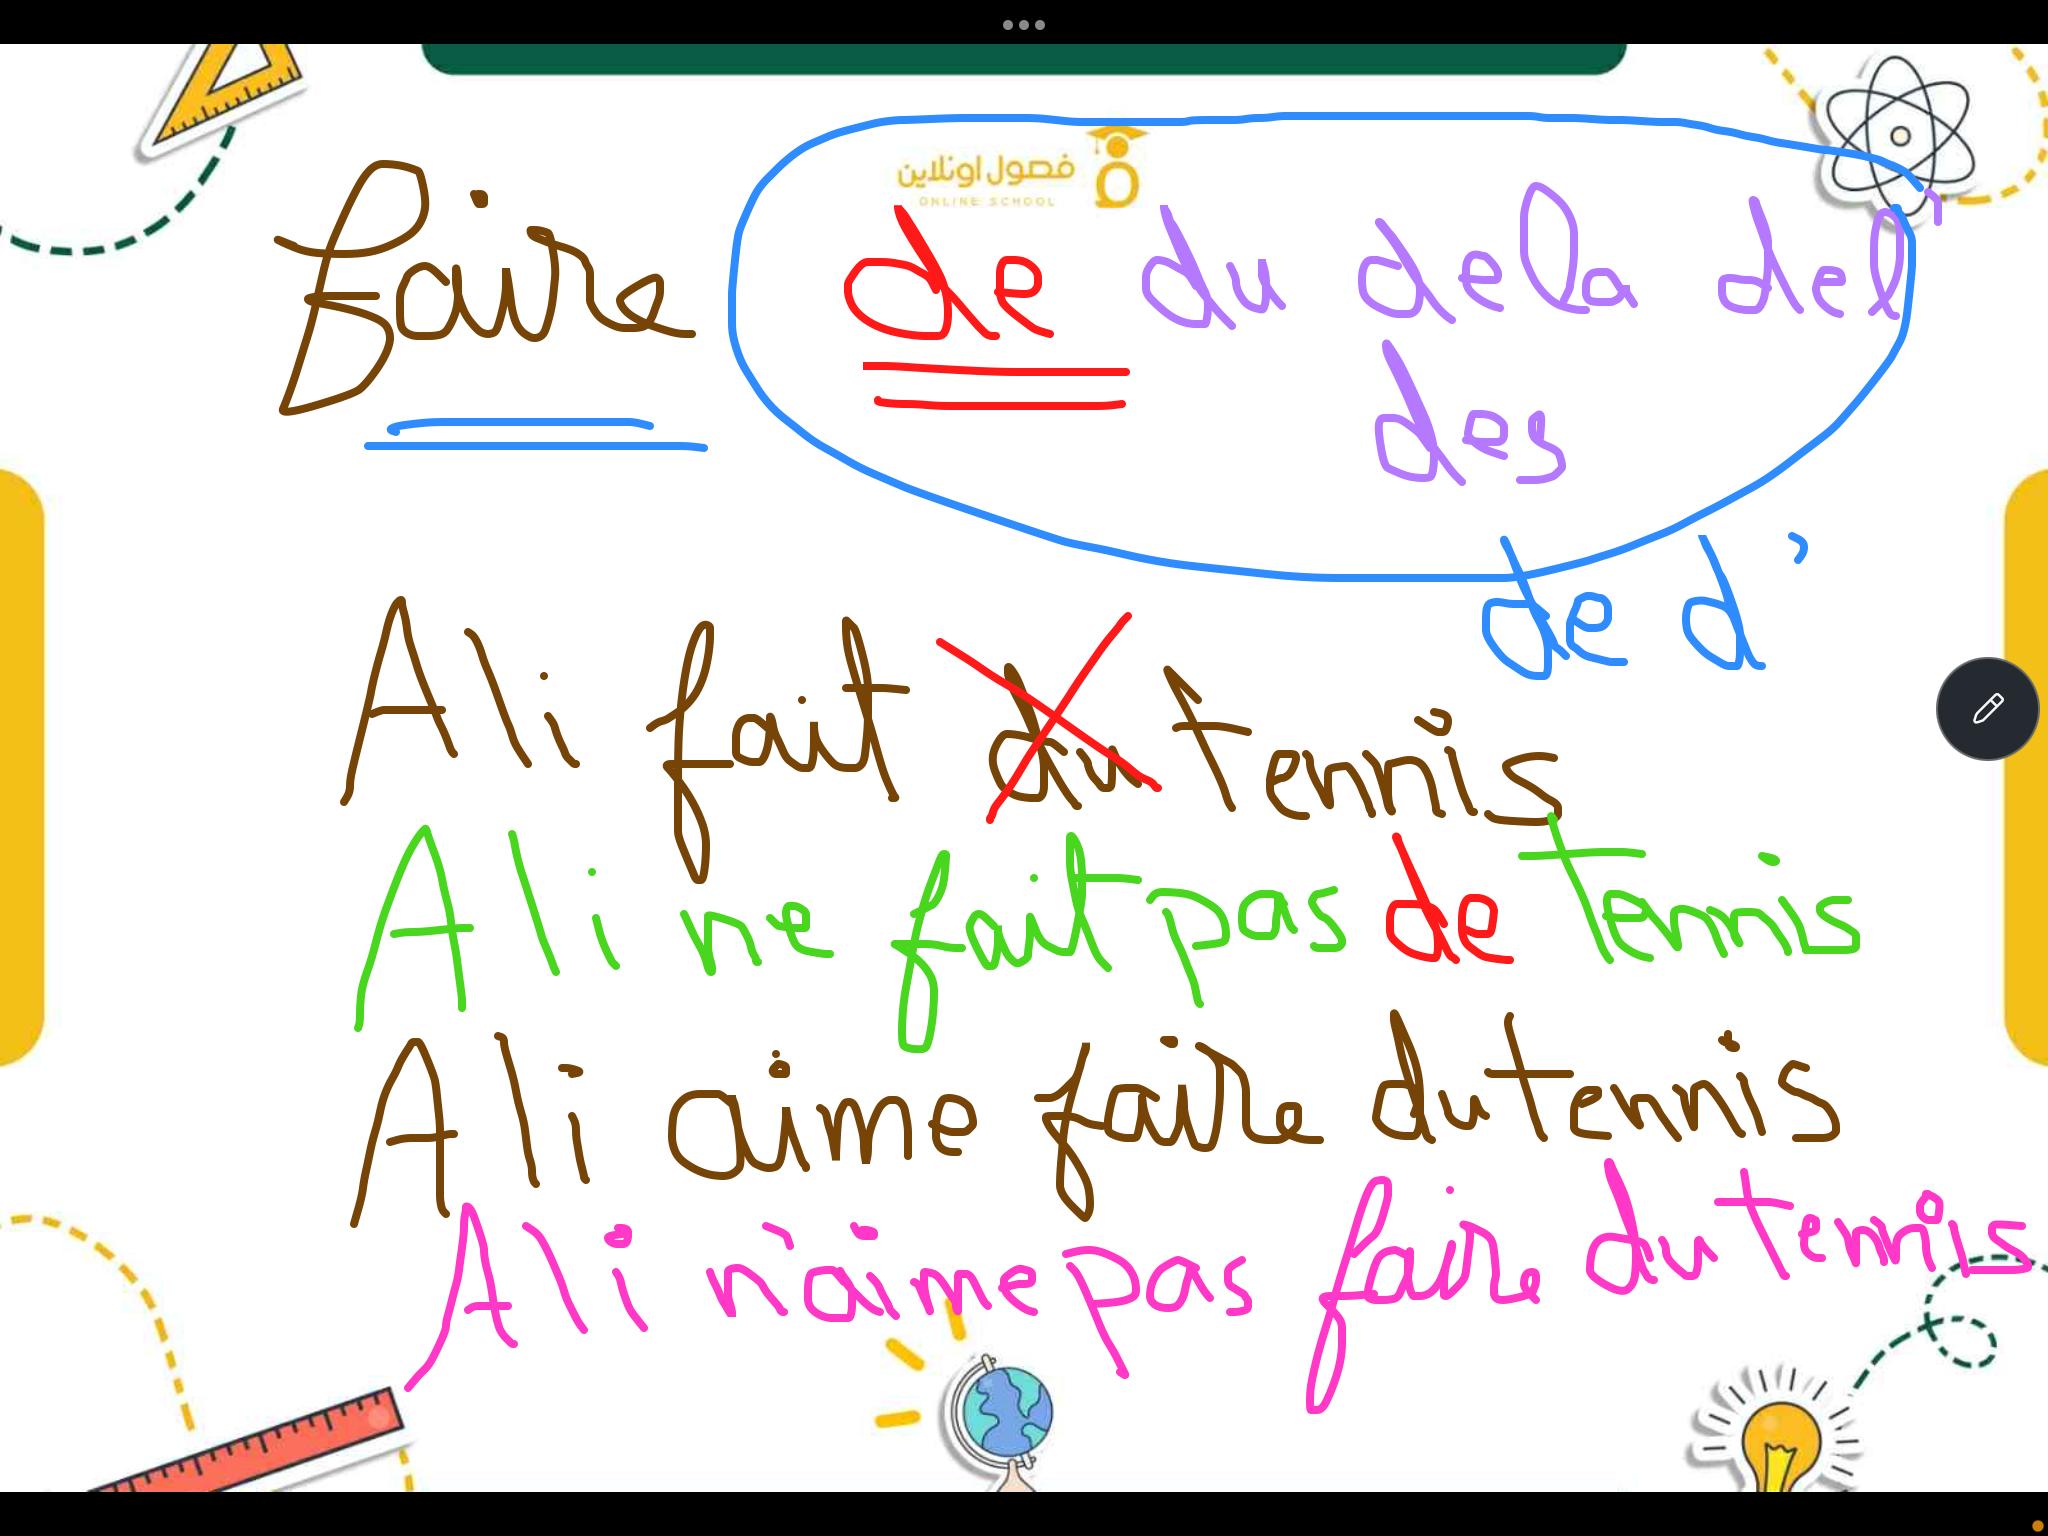 فصول اونلاين
ONLINE SCHOOL
faire de du de la de l'
des
de d'
Ali fait du tennis
Ali ne fait pas de tennis
Ali aime faire du tennis
Ali n'aime pas faire du tennis